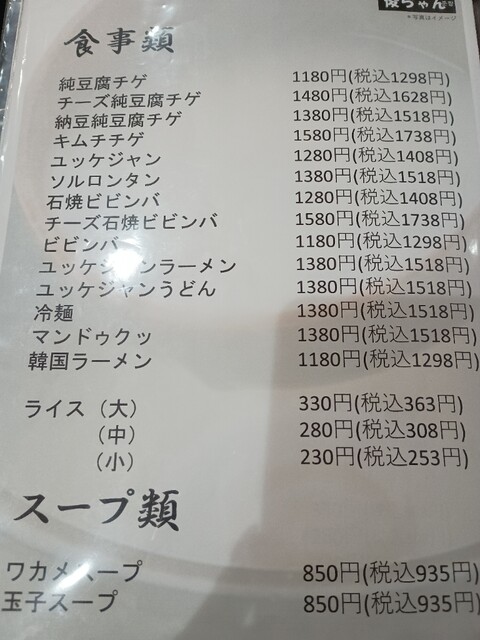 俊ちゃん
*写真はイメージ
食事類
純豆腐チゲ 1180円(税込1298円)
チーズ純豆腐チゲ 1480円(税込1628円)
納豆純豆腐チゲ 1380円(税込1518円)
キムチチゲ 1580円(税込1738円)
ユッケジャン 1280円(税込1408円)
ソルロンタン 1380円(税込1518円)
石焼ビビンバ 1280円(税込1408円)
チーズ石焼ビビンバ 1580円(税込1738円)
ビビンバ 1180円(税込1298円)
ユッケジャンラーメン 1380円(税込1518円)
ユッケジャンうどん 1380円(税込1518円)
冷麺 1380円(税込1518円)
マンドゥクッ 1380円(税込1518円)
韓国ラーメン 1180円(税込1298円)
ライス（大） 330円(税込363円)
（中） 280円(税込308円)
（小） 230円(税込253円)
スープ類
ワカメスープ 850円(税込935円)
玉子スープ 850円(税込935円)